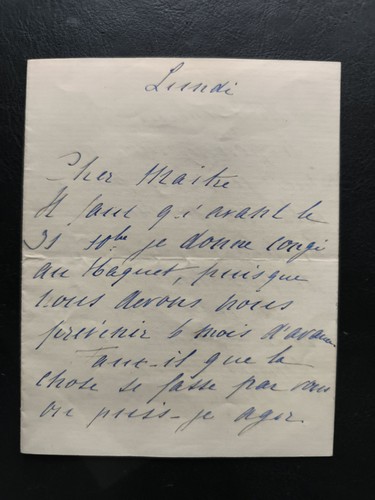 Lundi
Cher Maître
Il faut qu'avant le
31 10bre je donne congé
au Haquet, puisque
nous devons nous
prévenir 6 mois d'avance
Faut-il que la
chose se fasse par vous
ou puis-je agir